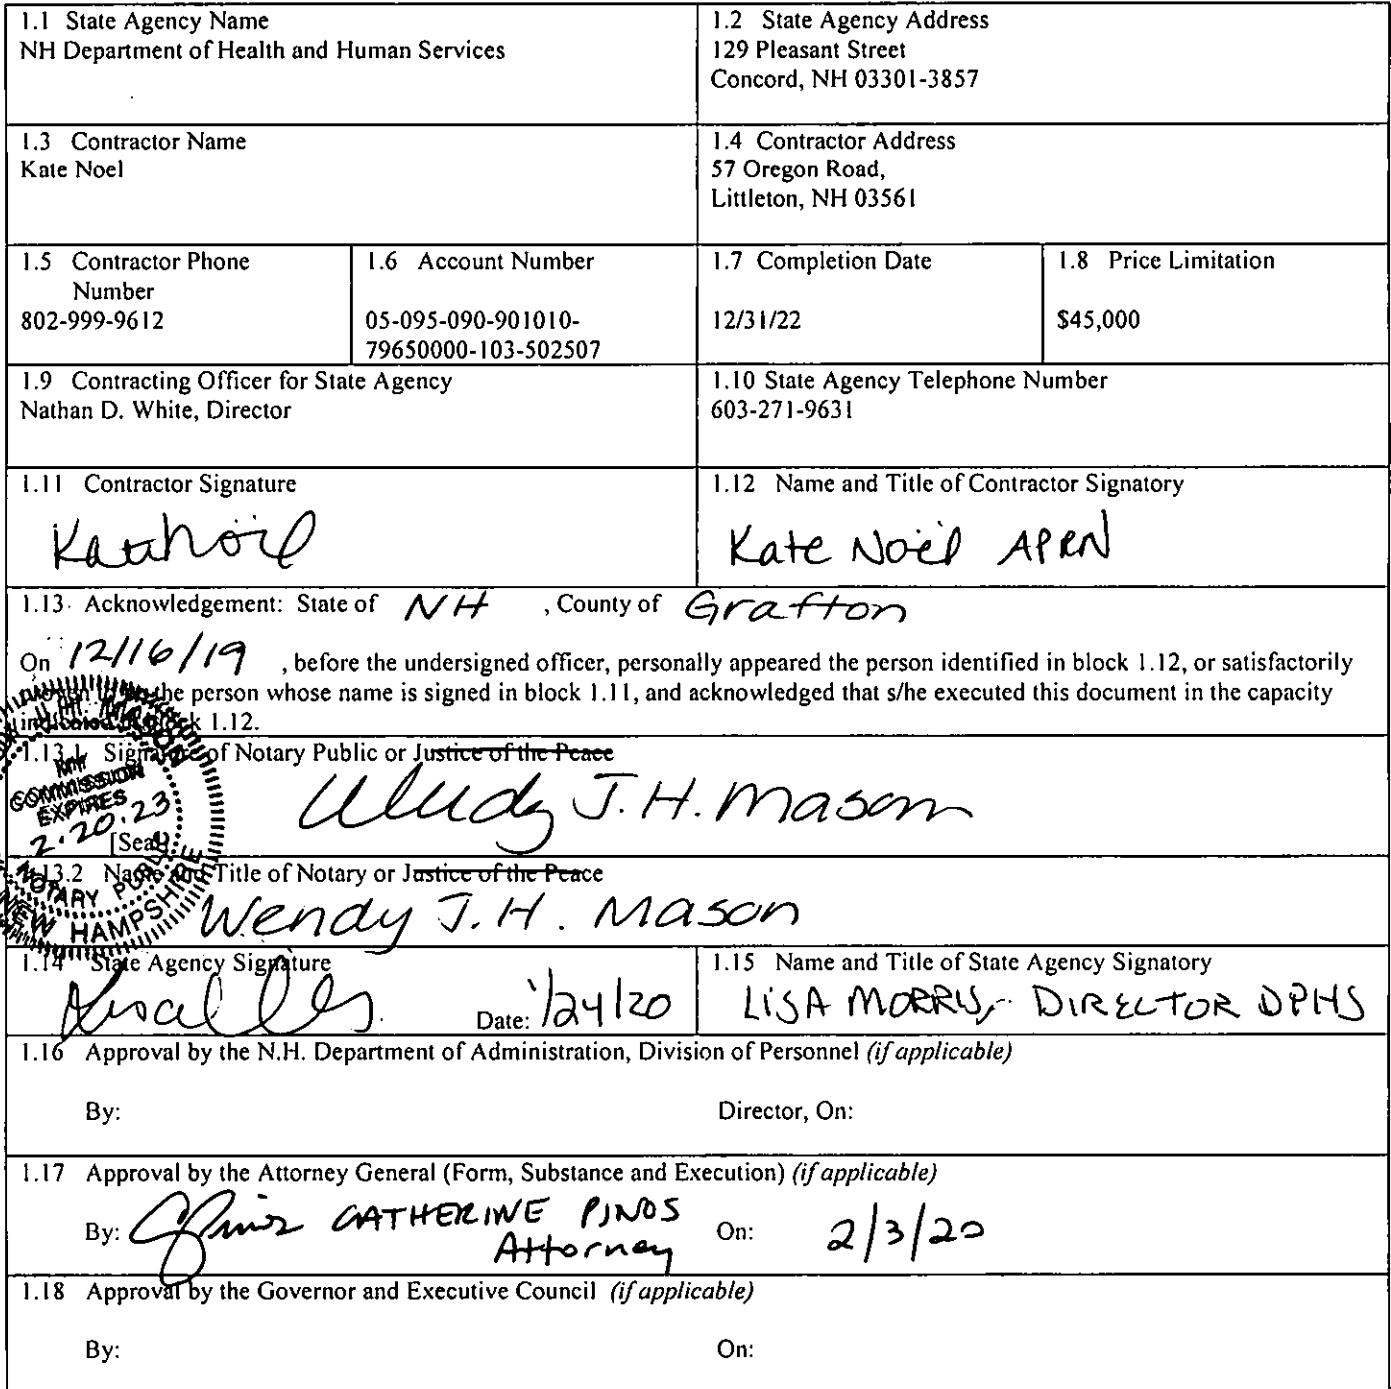 1.1 State Agency Name
NH Department of Health and Human Services
1.2 State Agency Address
129 Pleasant Street
Concord, NH 03301-3857
1.3 Contractor Name
Kate Noel
1.4 Contractor Address
57 Oregon Road,
Littleton, NH 03561
1.5 Contractor Phone
Number
802-999-9612
1.6 Account Number
05-095-090-901010-
79650000-103-502507
1.7 Completion Date
12/31/22
1.8 Price Limitation
$45,000
1.9 Contracting Officer for State Agency
Nathan D. White, Director
1.10 State Agency Telephone Number
603-271-9631
1.11 Contractor Signature
1.12 Name and Title of Contractor Signatory
Kate Noël APRN
1.13 Acknowledgement: State of NH , County of Grafton
On 12/16/19 , before the undersigned officer, personally appeared the person identified in block 1.12, or satisfactorily
the person whose name is signed in block 1.11, and acknowledged that s/he executed this document in the capacity
indicated in block 1.12.
1.13.1 Signature of Notary Public or Justice of the Peace
Wendy J.H. Mason
MY
COMMISSION
EXPIRES
2.20.23
[Seal]
NOTARY PUBLIC
NEW HAMPSHIRE
1.13.2 Name and Title of Notary or Justice of the Peace
Wendy J. H. Mason
1.14 State Agency Signature
Date: 1/24/20
1.15 Name and Title of State Agency Signatory
LISA MORRIS, DIRECTOR DPHS
1.16 Approval by the N.H. Department of Administration, Division of Personnel (if applicable)
By:
Director, On:
1.17 Approval by the Attorney General (Form, Substance and Execution) (if applicable)
By: CATHERINE PINOS
Attorney
On: 2/3/20
1.18 Approval by the Governor and Executive Council (if applicable)
By:
On: